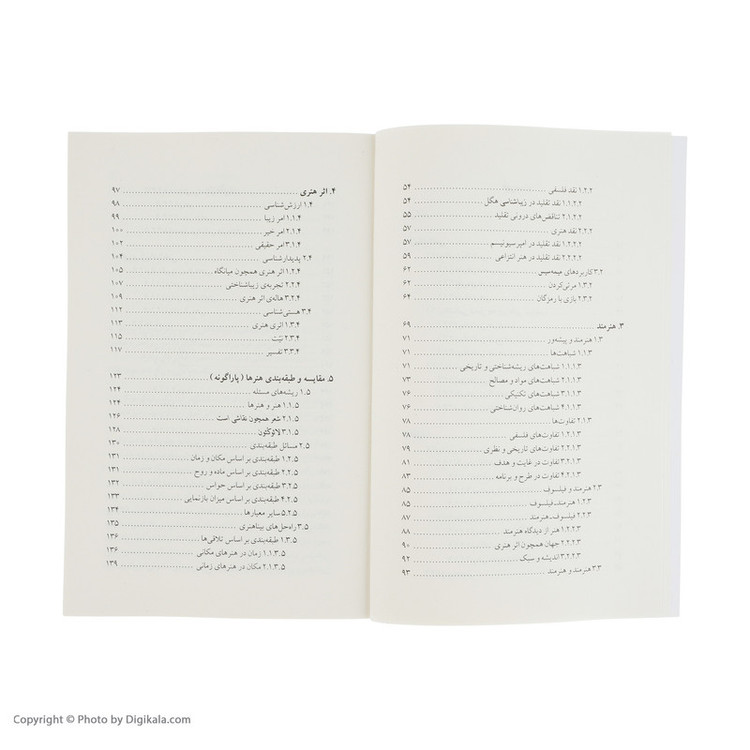 ۱.۲.۲ نقد فلسفی ........ ۵۴
۱.۲.۲.۱ نقد تقلید در زیباشناسی هگل ........ ۵۴
۲.۱.۲.۲ تناقض‌های درونی تقلید ........ ۵۵
۲.۲.۲ نقد هنری ........ ۵۷
۱.۲.۲.۲ نقد تقلید در امپرسیونیسم ........ ۵۷
۲.۲.۲.۲ نقد تقلید در هنر انتزاعی ........ ۵۹
۳.۲ کاربردهای میمه‌سیس ........ ۶۲
۱.۳.۲ مرئی‌کردن ........ ۶۲
۲.۳.۲ بازی با رمزگان ........ ۶۴
۳. هنرمند ........ ۶۹
۱.۳ هنرمند و پیشه‌ور ........ ۷۱
۱.۱.۳ شباهت‌ها ........ ۷۱
۱.۱.۱.۳ شباهت‌های ریشه‌شناختی و تاریخی ........ ۷۱
۲.۱.۱.۳ شباهت‌های مواد و مصالح ........ ۷۳
۳.۱.۱.۳ شباهت‌های تکنیکی ........ ۷۶
۴.۱.۱.۳ شباهت‌های روان‌شناختی ........ ۷۶
۲.۱.۳ تفاوت‌ها ........ ۷۸
۱.۲.۱.۳ تفاوت‌های فلسفی ........ ۷۸
۲.۲.۱.۳ تفاوت‌های تاریخی و نظری ........ ۷۹
۳.۲.۱.۳ تفاوت در غایت و هدف ........ ۸۱
۴.۲.۱.۳ تفاوت در طرح و برنامه ........ ۸۳
۲.۳ هنرمند و فیلسوف ........ ۸۵
۱.۲.۳ هنرمند-فیلسوف ........ ۸۵
۲.۲.۳ فیلسوف-هنرمند ........ ۸۷
۱.۲.۲.۳ هنر از دیدگاه هنرمند ........ ۸۸
۲.۲.۲.۳ جهان همچون اثر هنری ........ ۹۰
۳.۲.۲.۳ اندیشه و سبک ........ ۹۲
۳.۳ هنرمند و هنرمند ........ ۹۳
۴. اثر هنری ........ ۹۷
۱.۴ ارزش‌شناسی ........ ۹۸
۱.۱.۴ امر زیبا ........ ۹۹
۲.۱.۴ امر خیر ........ ۱۰۰
۳.۱.۴ امر حقیقی ........ ۱۰۲
۲.۴ پدیدارشناسی ........ ۱۰۴
۱.۲.۴ اثر هنری همچون میانگاه ........ ۱۰۵
۲.۲.۴ تجربه‌ی زیباشناختی ........ ۱۰۷
۳.۲.۴ هاله‌ی اثر هنری ........ ۱۰۹
۳.۴ هستی‌شناسی ........ ۱۱۲
۱.۳.۴ اثری هنری ........ ۱۱۳
۲.۳.۴ نیّت ........ ۱۱۵
۳.۳.۴ تفسیر ........ ۱۱۷
۵. مقایسه و طبقه‌بندی هنرها (پاراگونه) ........ ۱۲۳
۱.۵ ریشه‌های مسئله ........ ۱۲۴
۱.۱.۵ هنر و هنرها ........ ۱۲۴
۲.۱.۵ شعر همچون نقاشی است ........ ۱۲۶
۳.۱.۵ لائوکُئون ........ ۱۲۸
۲.۵ مسائل طبقه‌بندی ........ ۱۳۰
۱.۲.۵ طبقه‌بندی بر اساس مکان و زمان ........ ۱۳۱
۲.۲.۵ طبقه‌بندی بر اساس ماده و روح ........ ۱۳۱
۳.۲.۵ طبقه‌بندی بر اساس حواس ........ ۱۳۲
۴.۲.۵ طبقه‌بندی بر اساس میزان بازنمایی ........ ۱۳۳
۵.۲.۵ سایر معیارها ........ ۱۳۴
۳.۵ راه‌حل‌های بیناهنری ........ ۱۳۵
۱.۳.۵ طبقه‌بندی بر اساس تلاقی‌ها ........ ۱۳۶
۱.۱.۳.۵ زمان در هنرهای مکانی ........ ۱۳۶
۲.۱.۳.۵ مکان در هنرهای زمانی ........ ۱۳۹
Copyright © Photo by Digikala.com